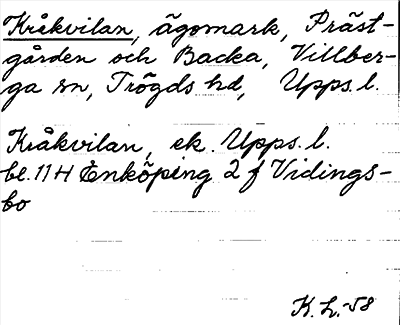 Kråkvilan, ägomark, Präst-
gården och Backa, Villber-
ga sn, Trögds hd, Upps. l.
Kråkvilan, ek. Upps. l.
bl. 11 H Enköping 2 f Vidings-
bo
K. L. -58